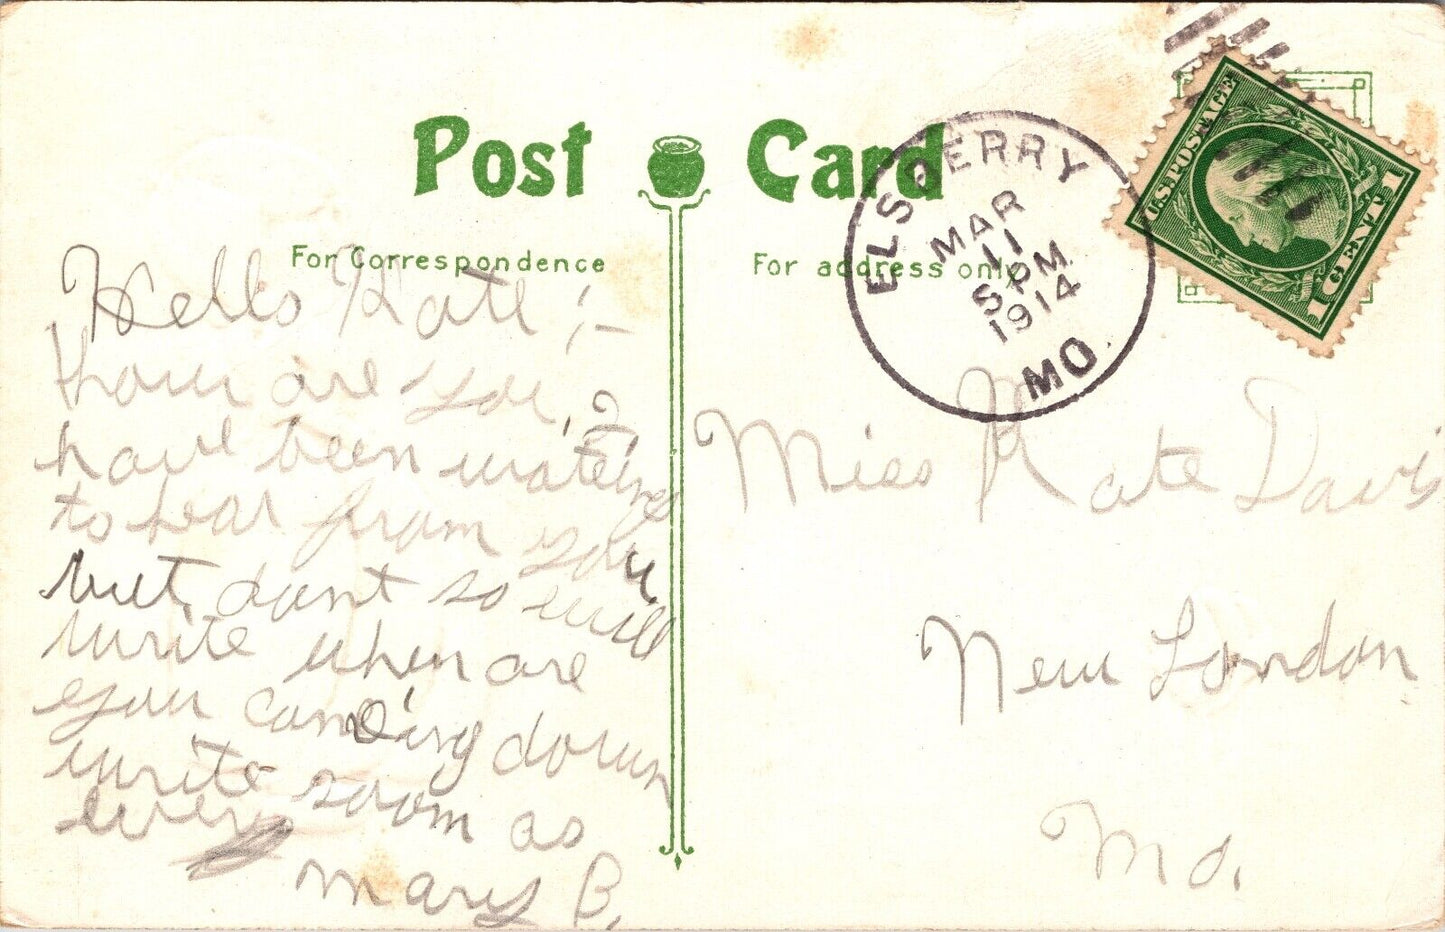 Post Card
For Correspondence
For address only
ELSBERRY
MAR
11
5 PM
1914
MO
U.S. POSTAGE
1 CENT 1
Hello Kate :-
how are you, I
have been wateing
to hear from you
but, dont so will
write when are
you comeing down
write soom as
ever
Mary B.
Miss Kate Davis
New London
Mo.